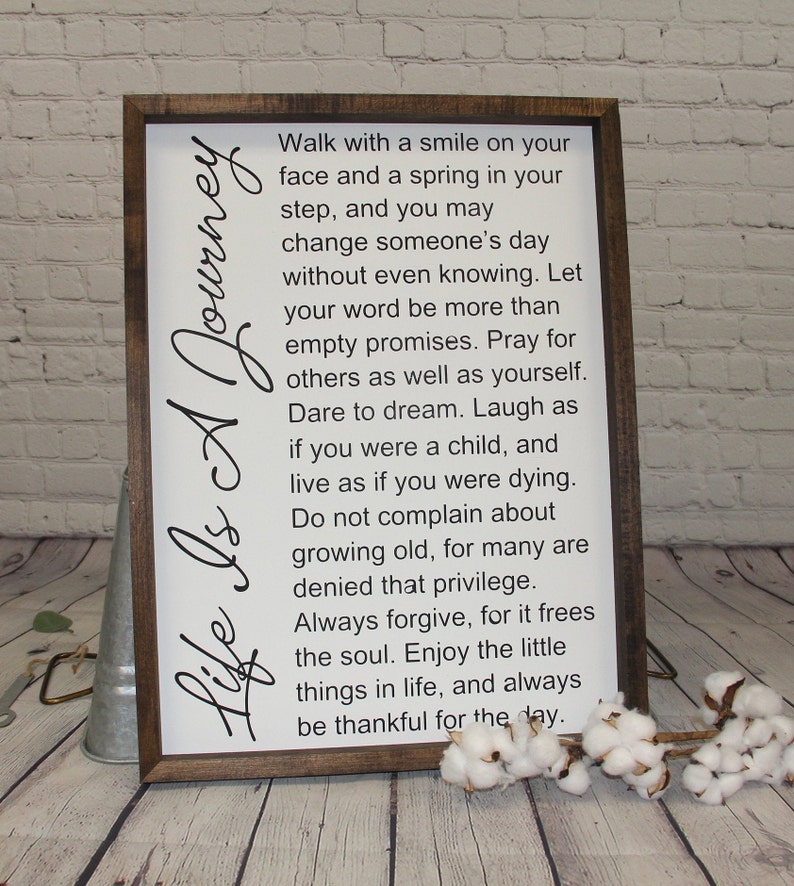 Life Is A Journey
Walk with a smile on your
face and a spring in your
step, and you may
change someone's day
without even knowing. Let
your word be more than
empty promises. Pray for
others as well as yourself.
Dare to dream. Laugh as
if you were a child, and
live as if you were dying.
Do not complain about
growing old, for many are
denied that privilege.
Always forgive, for it frees
the soul. Enjoy the little
things in life, and always
be thankful for the day.